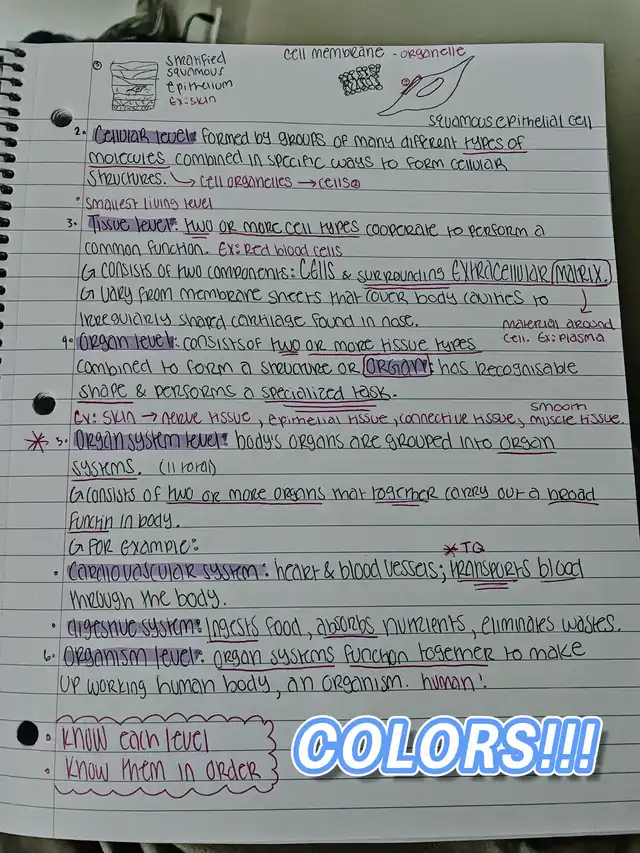 ① stratified
squamous
epithelium
ex: skin
cell membrane - organelle
squamous epithelial cell
2. Cellular level: formed by groups of many different types of
molecules combined in specific ways to form cellular
structures. ↳ cell organelles → cells
• smallest living level
3. Tissue level: two or more cell types cooperate to perform a
common function. Ex: Red blood cells
↳ consists of two components: Cells & surrounding Extracellular matrix.
↳ vary from membrane sheets that cover body cavities to
irregularly shared cartilage found in nose.
material around
cell. Ex: plasma
4. Organ level: consists of two or more tissue types
combined to form a structure or ORGAN: has recognisable
shape & performs a specialized task.
Ex: Skin → nerve tissue, epithelial tissue, connective tissue, smooth muscle tissue.
* 5. Organ system level: body's organs are grouped into organ
systems. (11 total)
↳ consists of two or more organs that together carry out a broad
functin in body.
↳ For example:
* TQ
• Cardiovascular system: heart & blood vessels; transports blood
through the body.
• digestive system: ingests food, absorbs nutrients, eliminates wastes.
6. Organism level: organ systems function together to make
up working human body, an organism. human!
• Know each level
• Know them in order
COLORS!!!